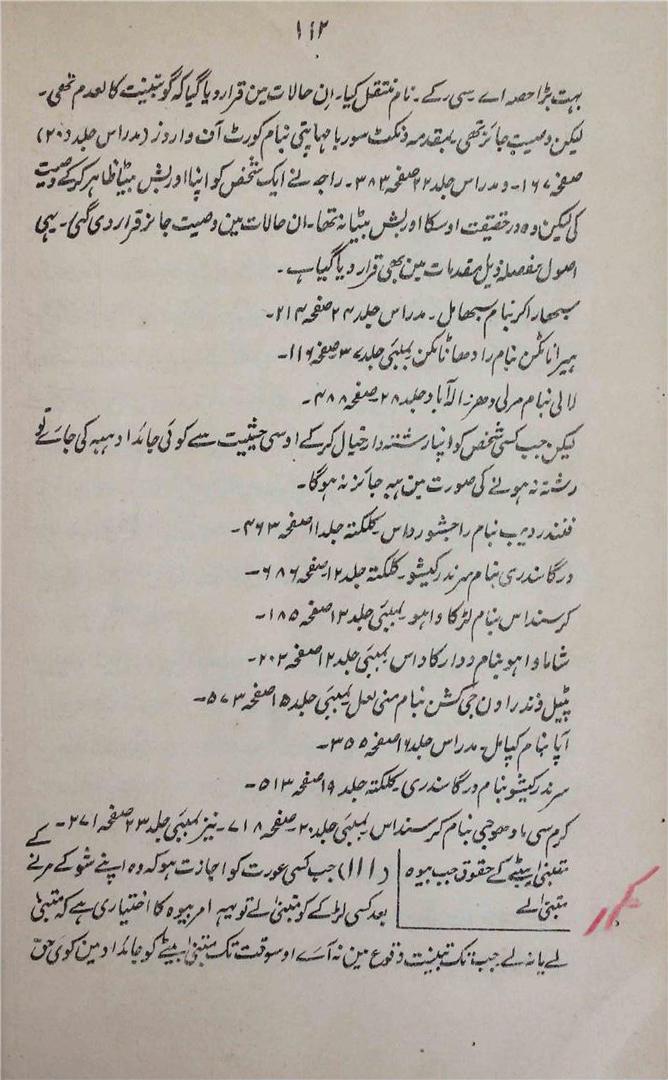 ۱۱۲
بہت بڑا حصہ اے سی رکے۔ نام منتقل کیا۔ ان حالات مین قرار دیا گیا کہ گو تبنیت کالعدم تھی۔
لیکن وصیت جائز تھی بمقدمہ ونکٹ سوریا مہاپتی بنام کورٹ آف وارڈز (مدراس جلد ۲۰)
صفحہ ۱۶۷۔ و مدراس جلد ۲۲ صفحہ ۳۸۳۔ راجہ نے ایک شخص کو اپنا اوربش بیٹا ظاہر کرکے وصیت
کی لیکن وہ در حقیقت اوسکا اوربش بیٹا نہ تھا۔ ان حالات مین وصیت جائز قرار دی گئی۔ یہی
اصول مفصلہ ذیل مقدمات مین بھی قرار دیا گیا ہے۔
سبھارا کر بنام سبھامل۔ مدراس جلد ۲۴ صفحہ ۲۱۴۔
ہیرا نائکن بنام رادھا نائکن بمبئی جلد ۳۷ صفحہ ۱۱۶۔
لالی بنام مرلی دھر الہ آباد جلد ۲۸ صفحہ ۴۸۸۔
لیکن جب کسی شخص کو اپنا رشتہ دار خیال کرکے اوسی حیثیت سے کوئی جائداد ہبہ کی جاے تو
رشتہ نہ ہونے کی صورت مین ہبہ جائز نہ ہوگا۔
فنندر دیب بنام راجشور داس کلکتہ جلد ۱۱ صفحہ ۴۶۳۔
درگا سندری بنام سرندر کیشو۔ کلکتہ جلد ۱۲ صفحہ ۶۸۶۔
کرسنداس بنام لڑکا واہو۔ بمبئی جلد ۱۲ صفحہ ۱۸۵۔
شاما واہو بنام دوارکا داس بمبئی جلد ۱۲ صفحہ ۲۰۲۔
پٹیل وندراون جی کشن بنام منی لعل بمبئی جلد ۱۵ صفحہ ۵۷۳۔
آپا بنام کپامل۔ مدراس جلد ۱۶ صفحہ ۳۵۵۔
سرندر کیشو بنام درگا سندری۔ کلکتہ جلد ۱۹ صفحہ ۵۱۳۔
کرم سی مادھوجی بنام کرسنداس بمبئی جلد ۲۰ صفحہ ۷۱۸۔ نیز بمبئی جلد ۲۳ صفحہ ۲۷۱۔
متبنیٰ بیٹے کے حقوق جب بیوہ
متبنیٰ لے
(۱۱۱) جب کسی عورت کو اجازت ہو کہ وہ اپنے شوہر کے مرنے کے
بعد کسی لڑکے کو متبنیٰ لے تو یہہ امر بیوہ کا اختیاری ہے کہ متبنیٰ
لے یا نہ لے جب تک تبنیت وقوع مین نہ آے اوسوقت تک متبنیٰ بیٹے کو جائداد مین کوی حق